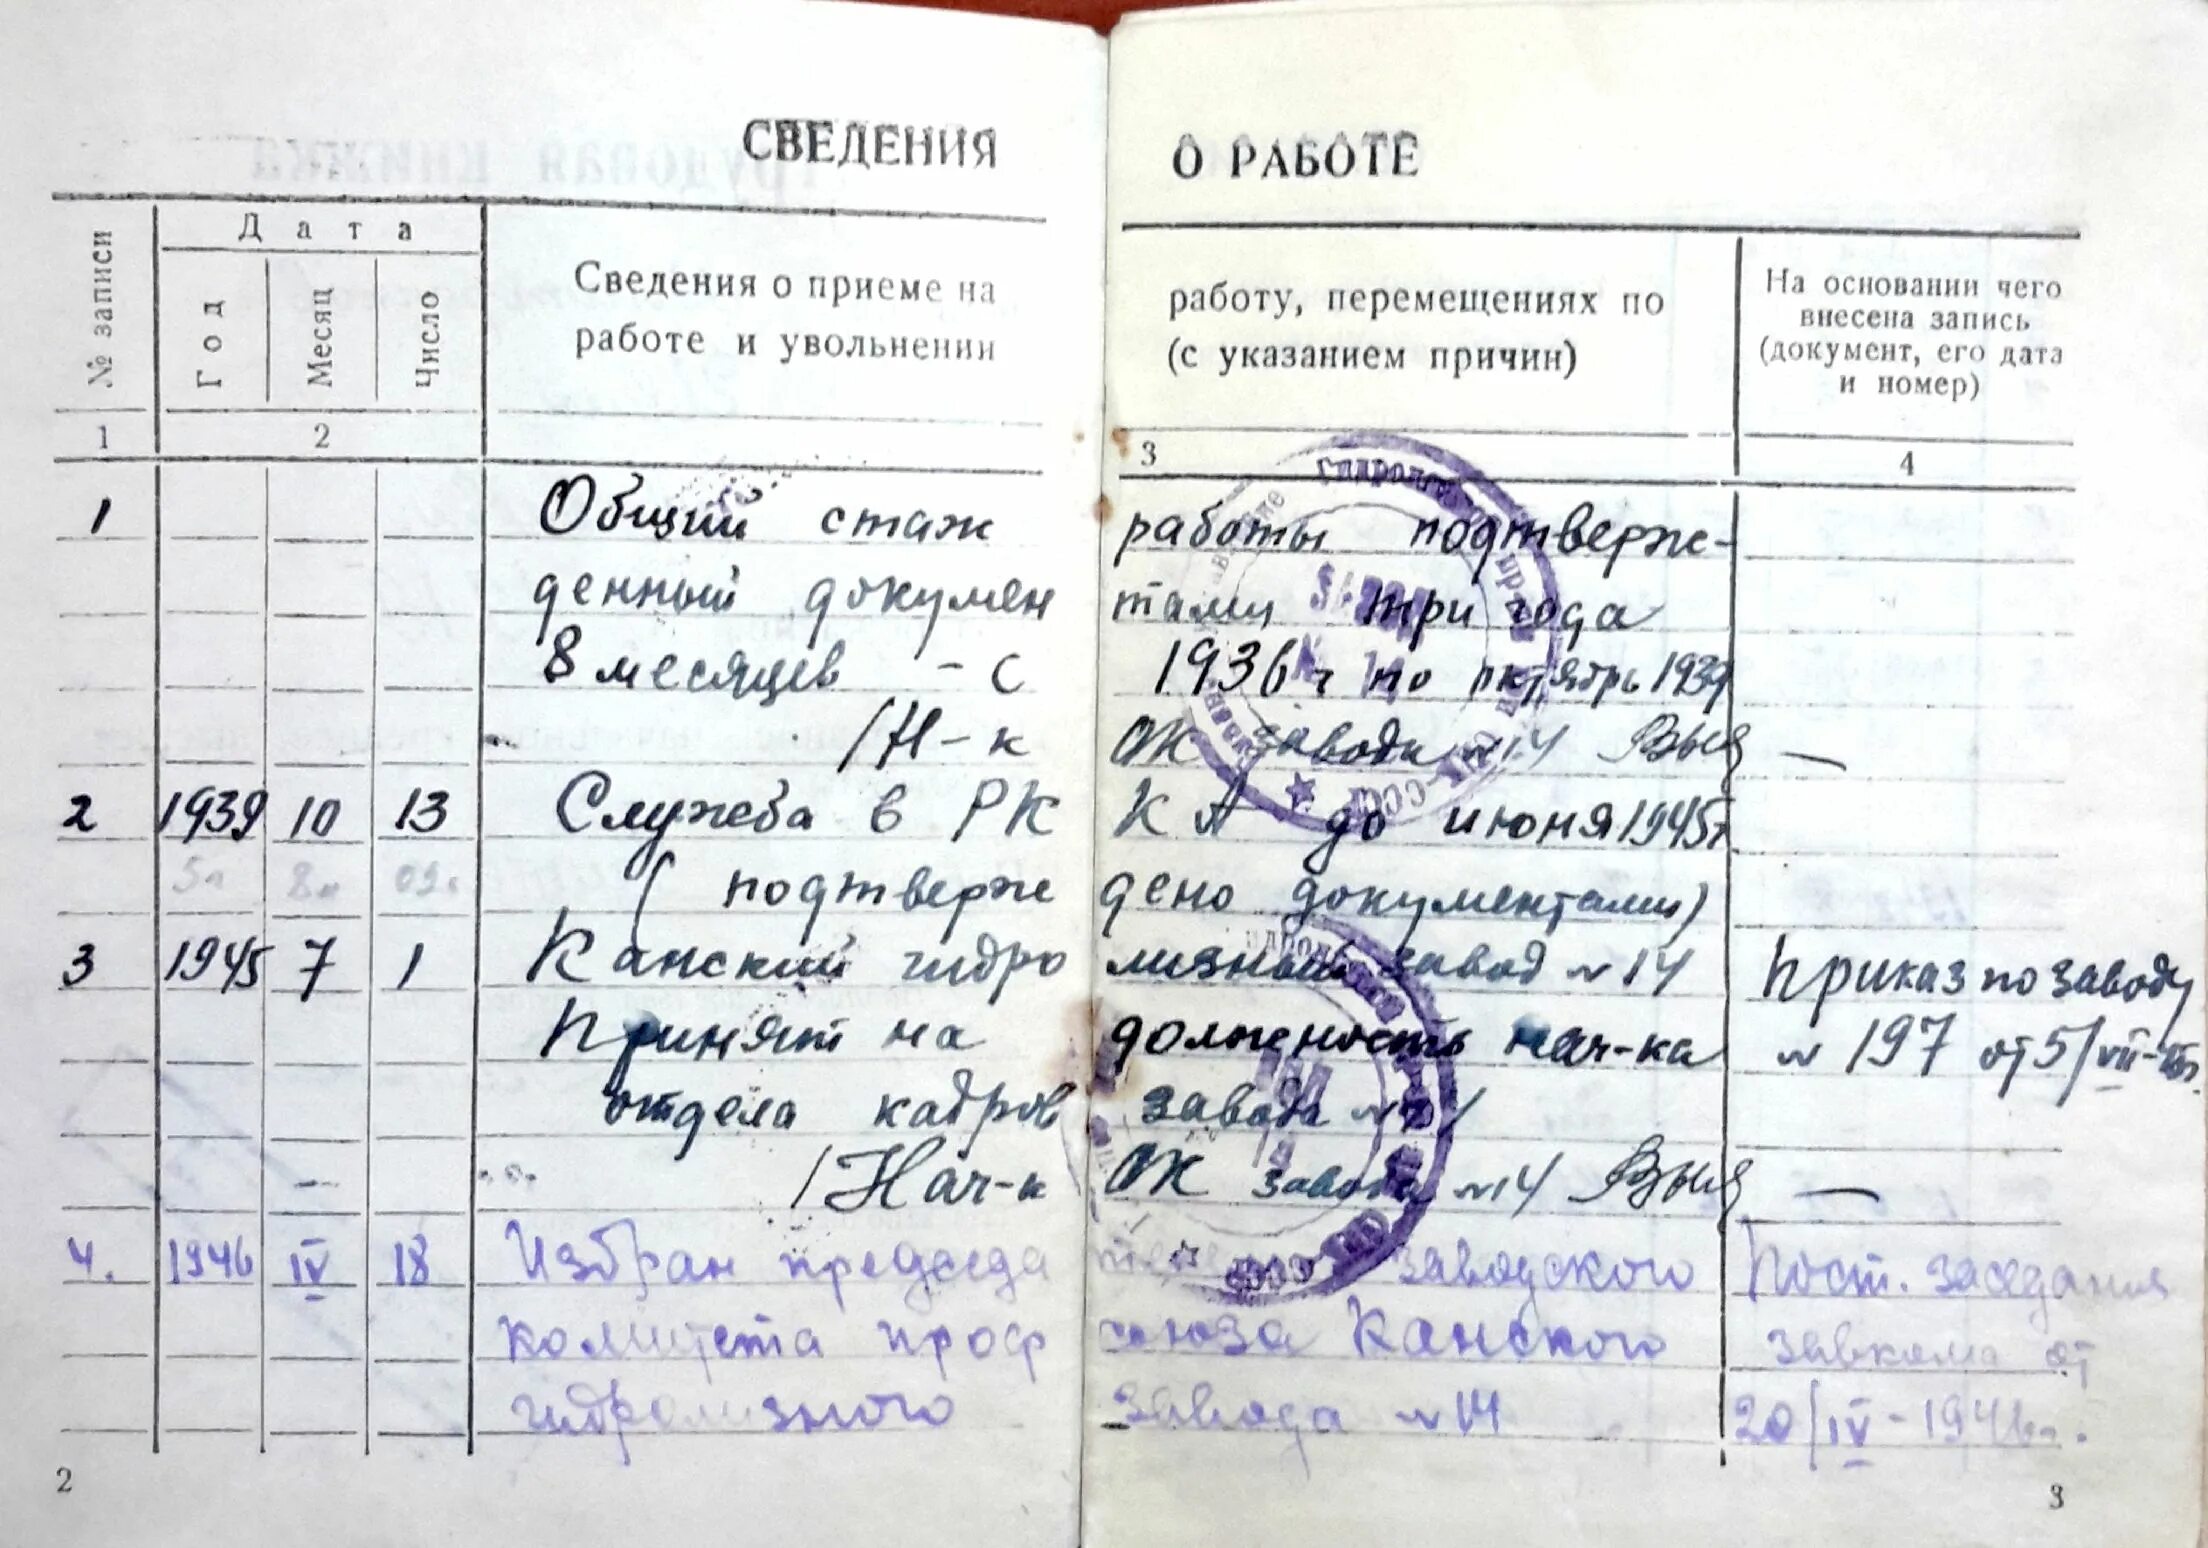 СВЕДЕНИЯ О РАБОТЕ
№ записи
Дата
Год
Месяц
Число
Сведения о приеме на работу, перемещениях по
работе и увольнении (с указанием причин)
На основании чего
внесена запись
(документ, его дата
и номер)
1 2 3 4
1 Общий стаж работы подтверж-
денный документами три года
8 месяцев - с 1936 г по октябрь 1939
/Н-к ОК завода №14
2 1939 10 13 Служба в РККА до июня 1945г.
(подтверждено документами)
3 1945 7 1 Канский гидролизный завод №14 Приказ по заводу
Принят на должность нач-ка №197 от 5/VII-
отдела кадров завода №14
/Нач-к ОК завода №14
4. 1946 IV 18 Избран председателем заводского Пост. заседания
комитета профсоюза Канского завкома от
гидролизного завода №14 20/IV-1946г.
2 3